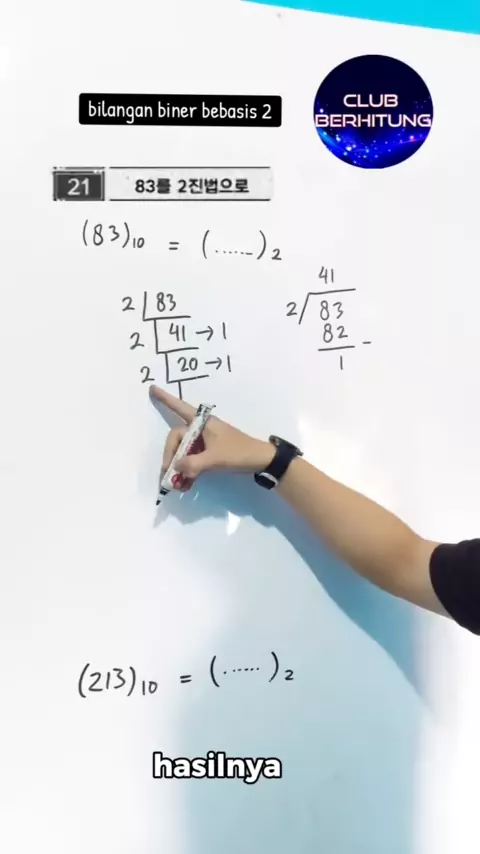 bilangan biner bebasis 2
CLUB
BERHITUNG
21 83를 2진법으로
(83)₁₀ = (......)₂
2 83
2 41 → 1
2 20 → 1
2
41
2 83
82
1 -
(213)₁₀ = (......)₂
hasilnya